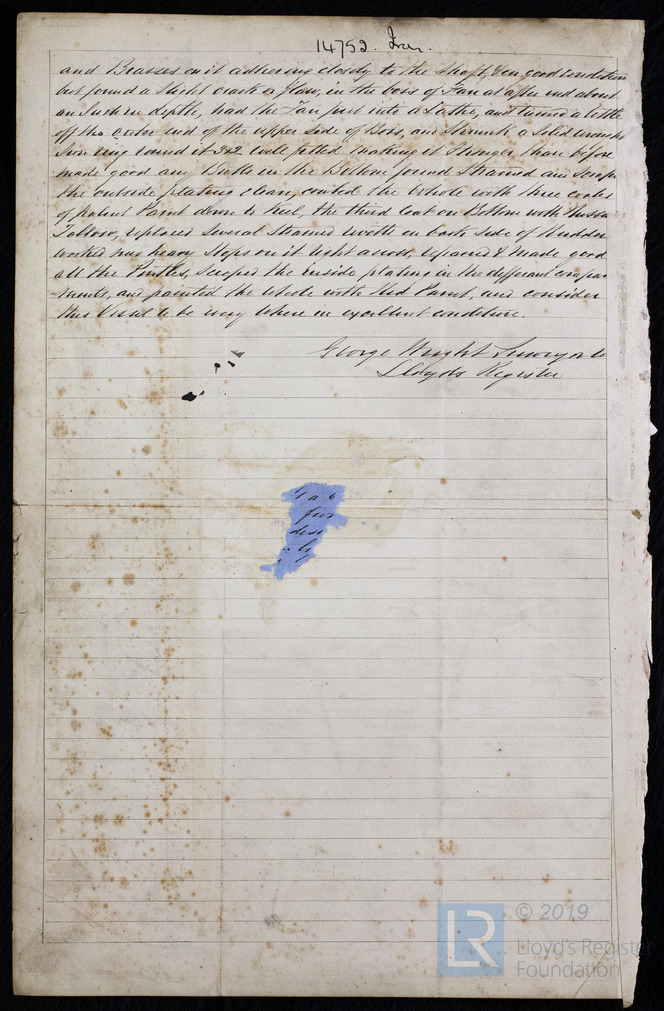 14752. Iron.
and Brasses on it adhering closely to the Shaft, & in good condition
but found a slight crack or flaw, in the boss of Fan at after end about
an Inch in depth, had the Fan put into a Lathe, and turned a little
off the outer end of the upper side of Boss, and Shrunk a Solid wrought
Iron ring round it 3x2 well fitted making it Stronger than before
made good any Butts in the Bottom found Strained and Scraped
the outside plating clean, coated the whole with three coats
of patent Paint down to Keel, the third coat on Bottom with Russia
Tallow, replaced Several Strained rivetts on back Side of Rudder
worked two heavy Stops on it right across, repaired & made good
all the Pintles, Scraped the inside plating in the different compar
tments, and painted the whole with Red Paint, and consider
this Vessel to be every where in excellent condition.
George Wright Surveyor to
Lloyds Register
for
© 2019
LR
Lloyd's Register
Foundation